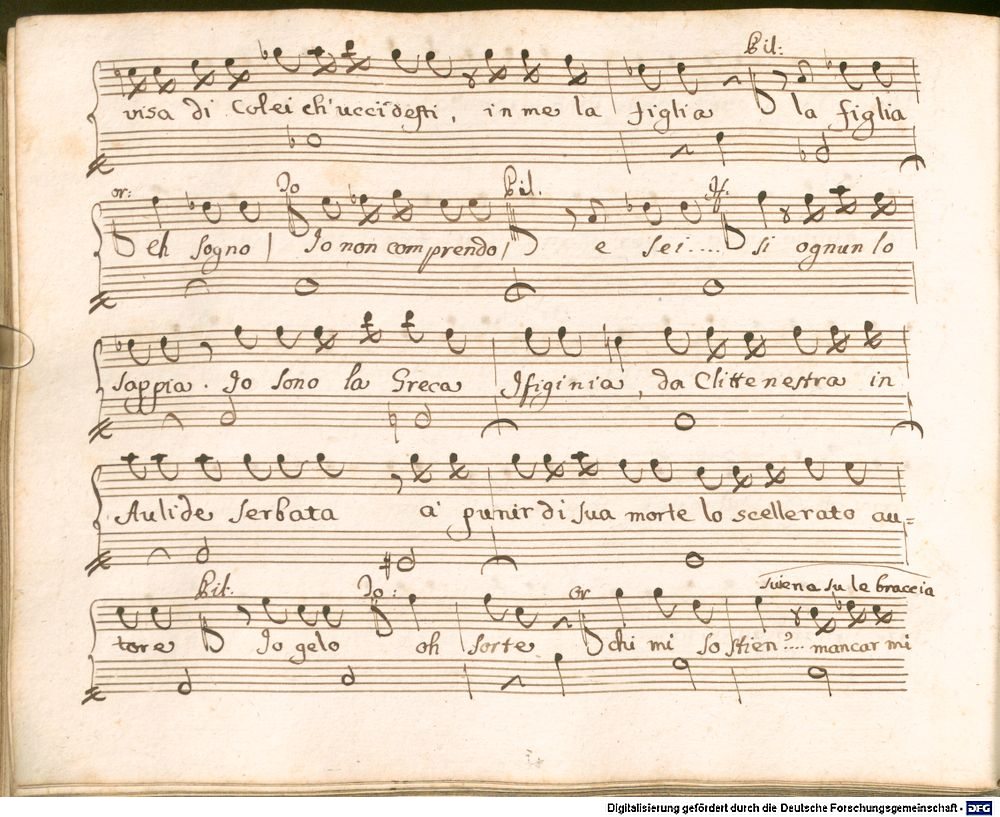 Pil:
visa di Colei ch'uccidesti, in me la figlia la figlia
or: Io Pil. If.
eh sogno / Io non comprendo / e sei..... si ognun lo
sappia. Io sono la Greca Ifiginia, da Clittenestra in
Aulide serbata a' punir di sua morte lo scellerato au=
Pil. Io: or sviena su le braccia
tore Io gelo oh sorte chi mi sostien?.... mancar mi
Digitalisierung gefördert durch die Deutsche Forschungsgemeinschaft - DFG